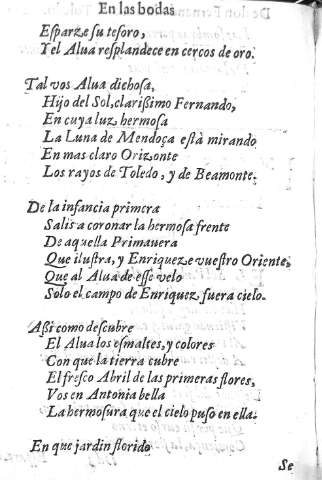 En las bodas
Esparze su tesoro,
Y el Alua resplandece en cercos de oro.
Tal vos Alua dichosa,
Hijo del Sol, clarißimo Fernando,
En cuya luz hermosa
La Luna de Mendoça està mirando
En mas claro Orizonte
Los rayos de Toledo, y de Beamonte.
De la infancia primera
Salis a coronar la hermosa frente
De aquella Primauera
Que ilustra, y Enriqueze vuestro Oriente,
Que al Alua de esse velo
Solo el campo de Enriquez fuera cielo.
Aßi como descubre
El Alua los esmaltes, y colores
Con que la tierra cubre
El fresco Abril de las primeras flores,
Vos en Antonia bella
La hermosura que el cielo puso en ella.
En que jardin florido
Se